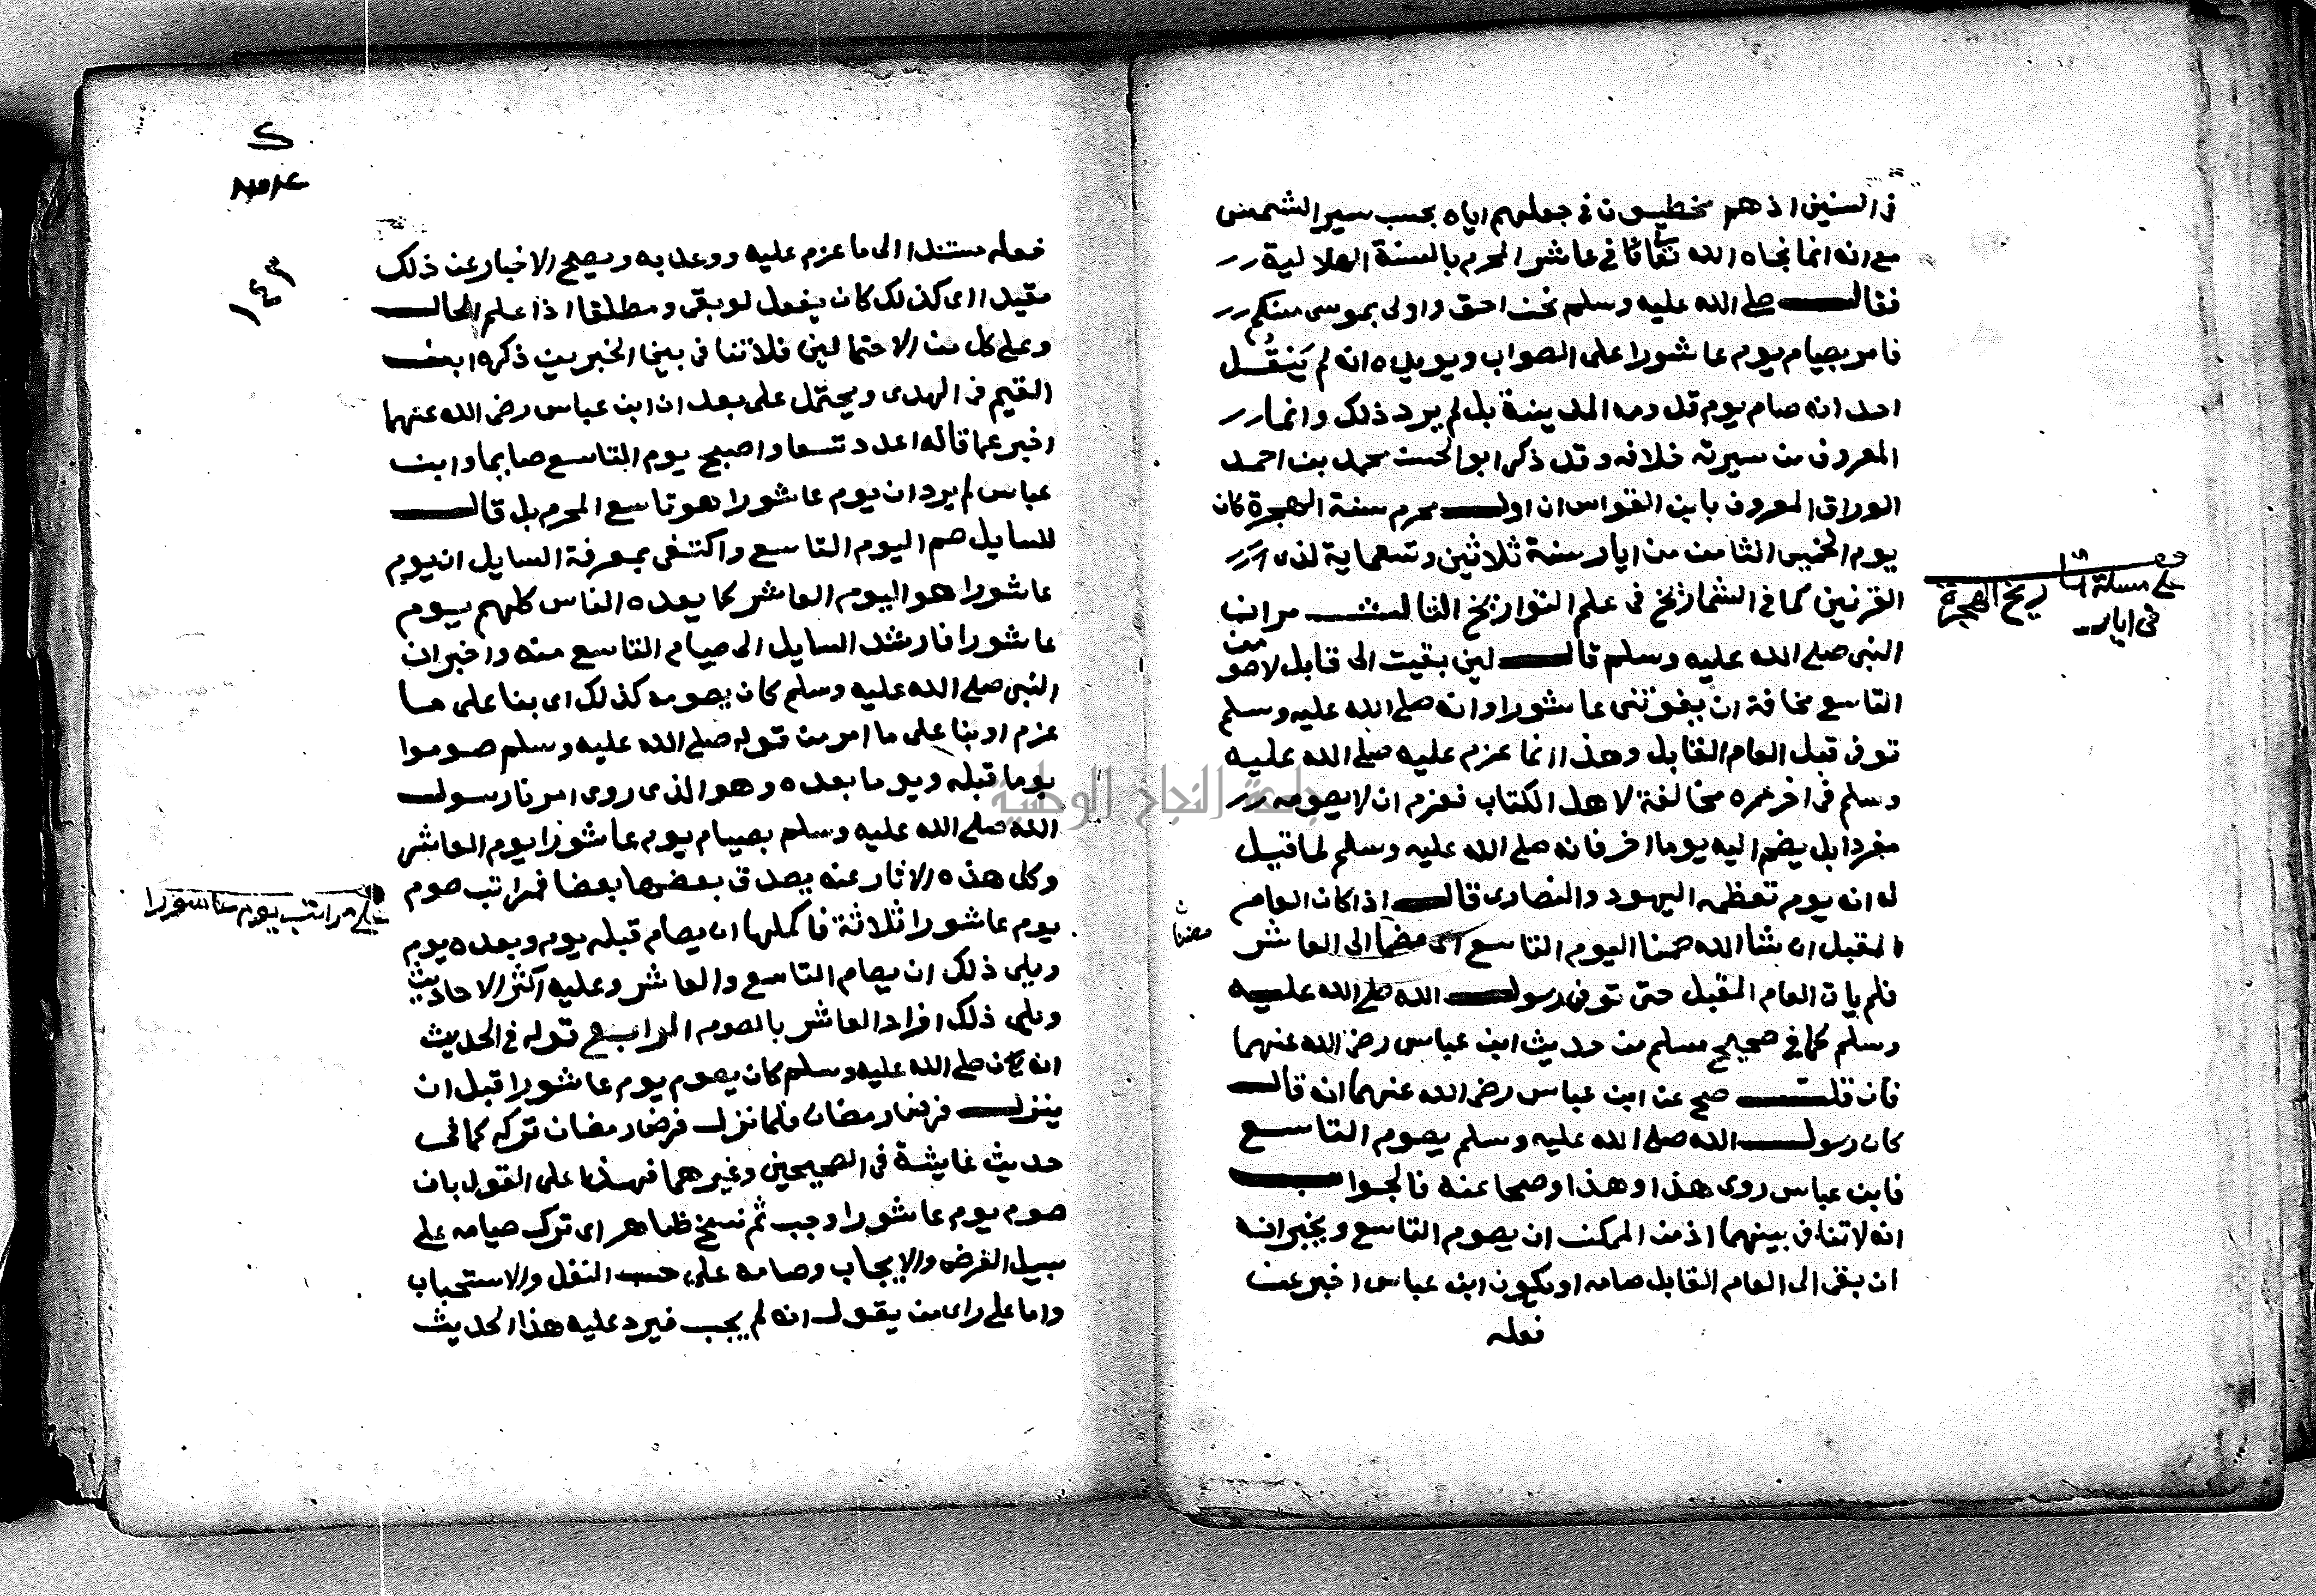 في السنين اذ هم مخطيون في جعلهم اياه بحسب سير الشمس
مع انه انما نجاه الله تعالى في عاشر المحرم بالسنة الهلالية
فقال صلى الله عليه وسلم نحن احق واولى بموسى منكم
فامر بصيام يوم عاشورا على الصواب ويويده انه لم يَنقُل
احد انه صام يوم قدومه المدينة بل لم يرد ذلك وانما
المعروف من سيرته خلافه وقد ذكر ابو الحسن محمد بن احمد
الوراق المعروف بابن القواس ان اول محرم سنة الهجرة كان
يوم الخميس الثامن من ايار سنة ثلاثين وتسعماية لذي
القرنين كما في الشماريخ في علم التواريخ الثالث مر ان
النبي صلى الله عليه وسلم قال لين بقيت الى قابل لاصومن
التاسع مخافة ان يفوتني عاشورا وانه صلى الله عليه وسلم
توفي قبل العام القابل وهذا انما عزم عليه صلى الله عليه
وسلم في اخر عمره مخالفة لاهل الكتاب فعزم ان لا يصومه
مفردا بل يضم اليه يوما اخر فانه صلى الله عليه وسلم لما قيل
له انه يوم تعظمه اليهود والنصارى قال اذا كان العام
المقبل ان شا الله صمنا اليوم التاسع اي مضما الى العاشر
فلم يات العام المقبل حتى توفي رسول الله صلى الله عليه
وسلم كما في صحيح مسلم من حديث ابن عباس رضي الله عنهما
فان قلت صح عن ابن عباس رضي الله عنهما انه قال
كان رسول الله صلى الله عليه وسلم يصوم التاسع
فابن عباس روى هذا وهذا وصحا عنه فالجواب
انه لا تنافي بينهما اذ من الممكن ان يصوم التاسع ويخبر انه
ان بقي الى العام القابل صامه او يكون ابن عباس اخبر عن
فعله
على مسلة التاريخ الهجرة
في ايار
١٤٣
فعله مستندا الى ما عزم عليه ووعد به ويصح الاخبار عن ذلك
مقيدا اي كذلك كان يفعل لو بقي ومطلقا اذا علم الحال
وعلى كل من الاحتمالين فلا تنافي بين الخبرين ذكره ابن
القيم في الهدى ويحتمل على بعد ان ابن عباس رضي الله عنهما
اخبر عما قاله اعدد تسعا واصبح يوم التاسع صايما وابن
عباس لم يرد ان يوم عاشورا هو تاسع المحرم بل قال
للسايل صم اليوم التاسع واكتفى بمعرفة السايل ان يوم
عاشورا هو اليوم العاشر كما يعده الناس كلهم يوم
عاشورا فارشد السايل الى صيام التاسع منه واخبر ان
النبي صلى الله عليه وسلم كان يصومه كذلك اي بنا على ما
عزم او بنا على ما امر من قوله صلى الله عليه وسلم صوموا
يوما قبله ويوما بعده وهو الذي روى امرنا رسول
الله صلى الله عليه وسلم بصيام يوم عاشورا يوم العاشر
وكل هذه الاثار عنه يصدق بعضها بعضا فمراتب صوم
يوم عاشورا ثلاثة فاكملها ان يصام قبله يوم وبعده يوم
ويلي ذلك ان يصام التاسع والعاشر وعليه اكثر الاحاديث
ويلي ذلك افراد العاشر بالصوم الرابع قوله في الحديث
انه كان صلى الله عليه وسلم كان يصوم يوم عاشورا قبل ان
ينزل فرض رمضان فلما نزل فرض رمضان تركه كما في
حديث عايشة في الصحيحين وغيرهما فهذا على القول بان
صوم يوم عاشورا وجب ثم نسخ ظاهر اي ترك صيامه على
سبيل الفرض والايجاب وصامه على حسب النفل والاستحباب
واما على راى من يقول انه لم يجب فيرد عليه هذا الحديث
على مراتب يوم عاشورا
جامعة النجاح الوطنية